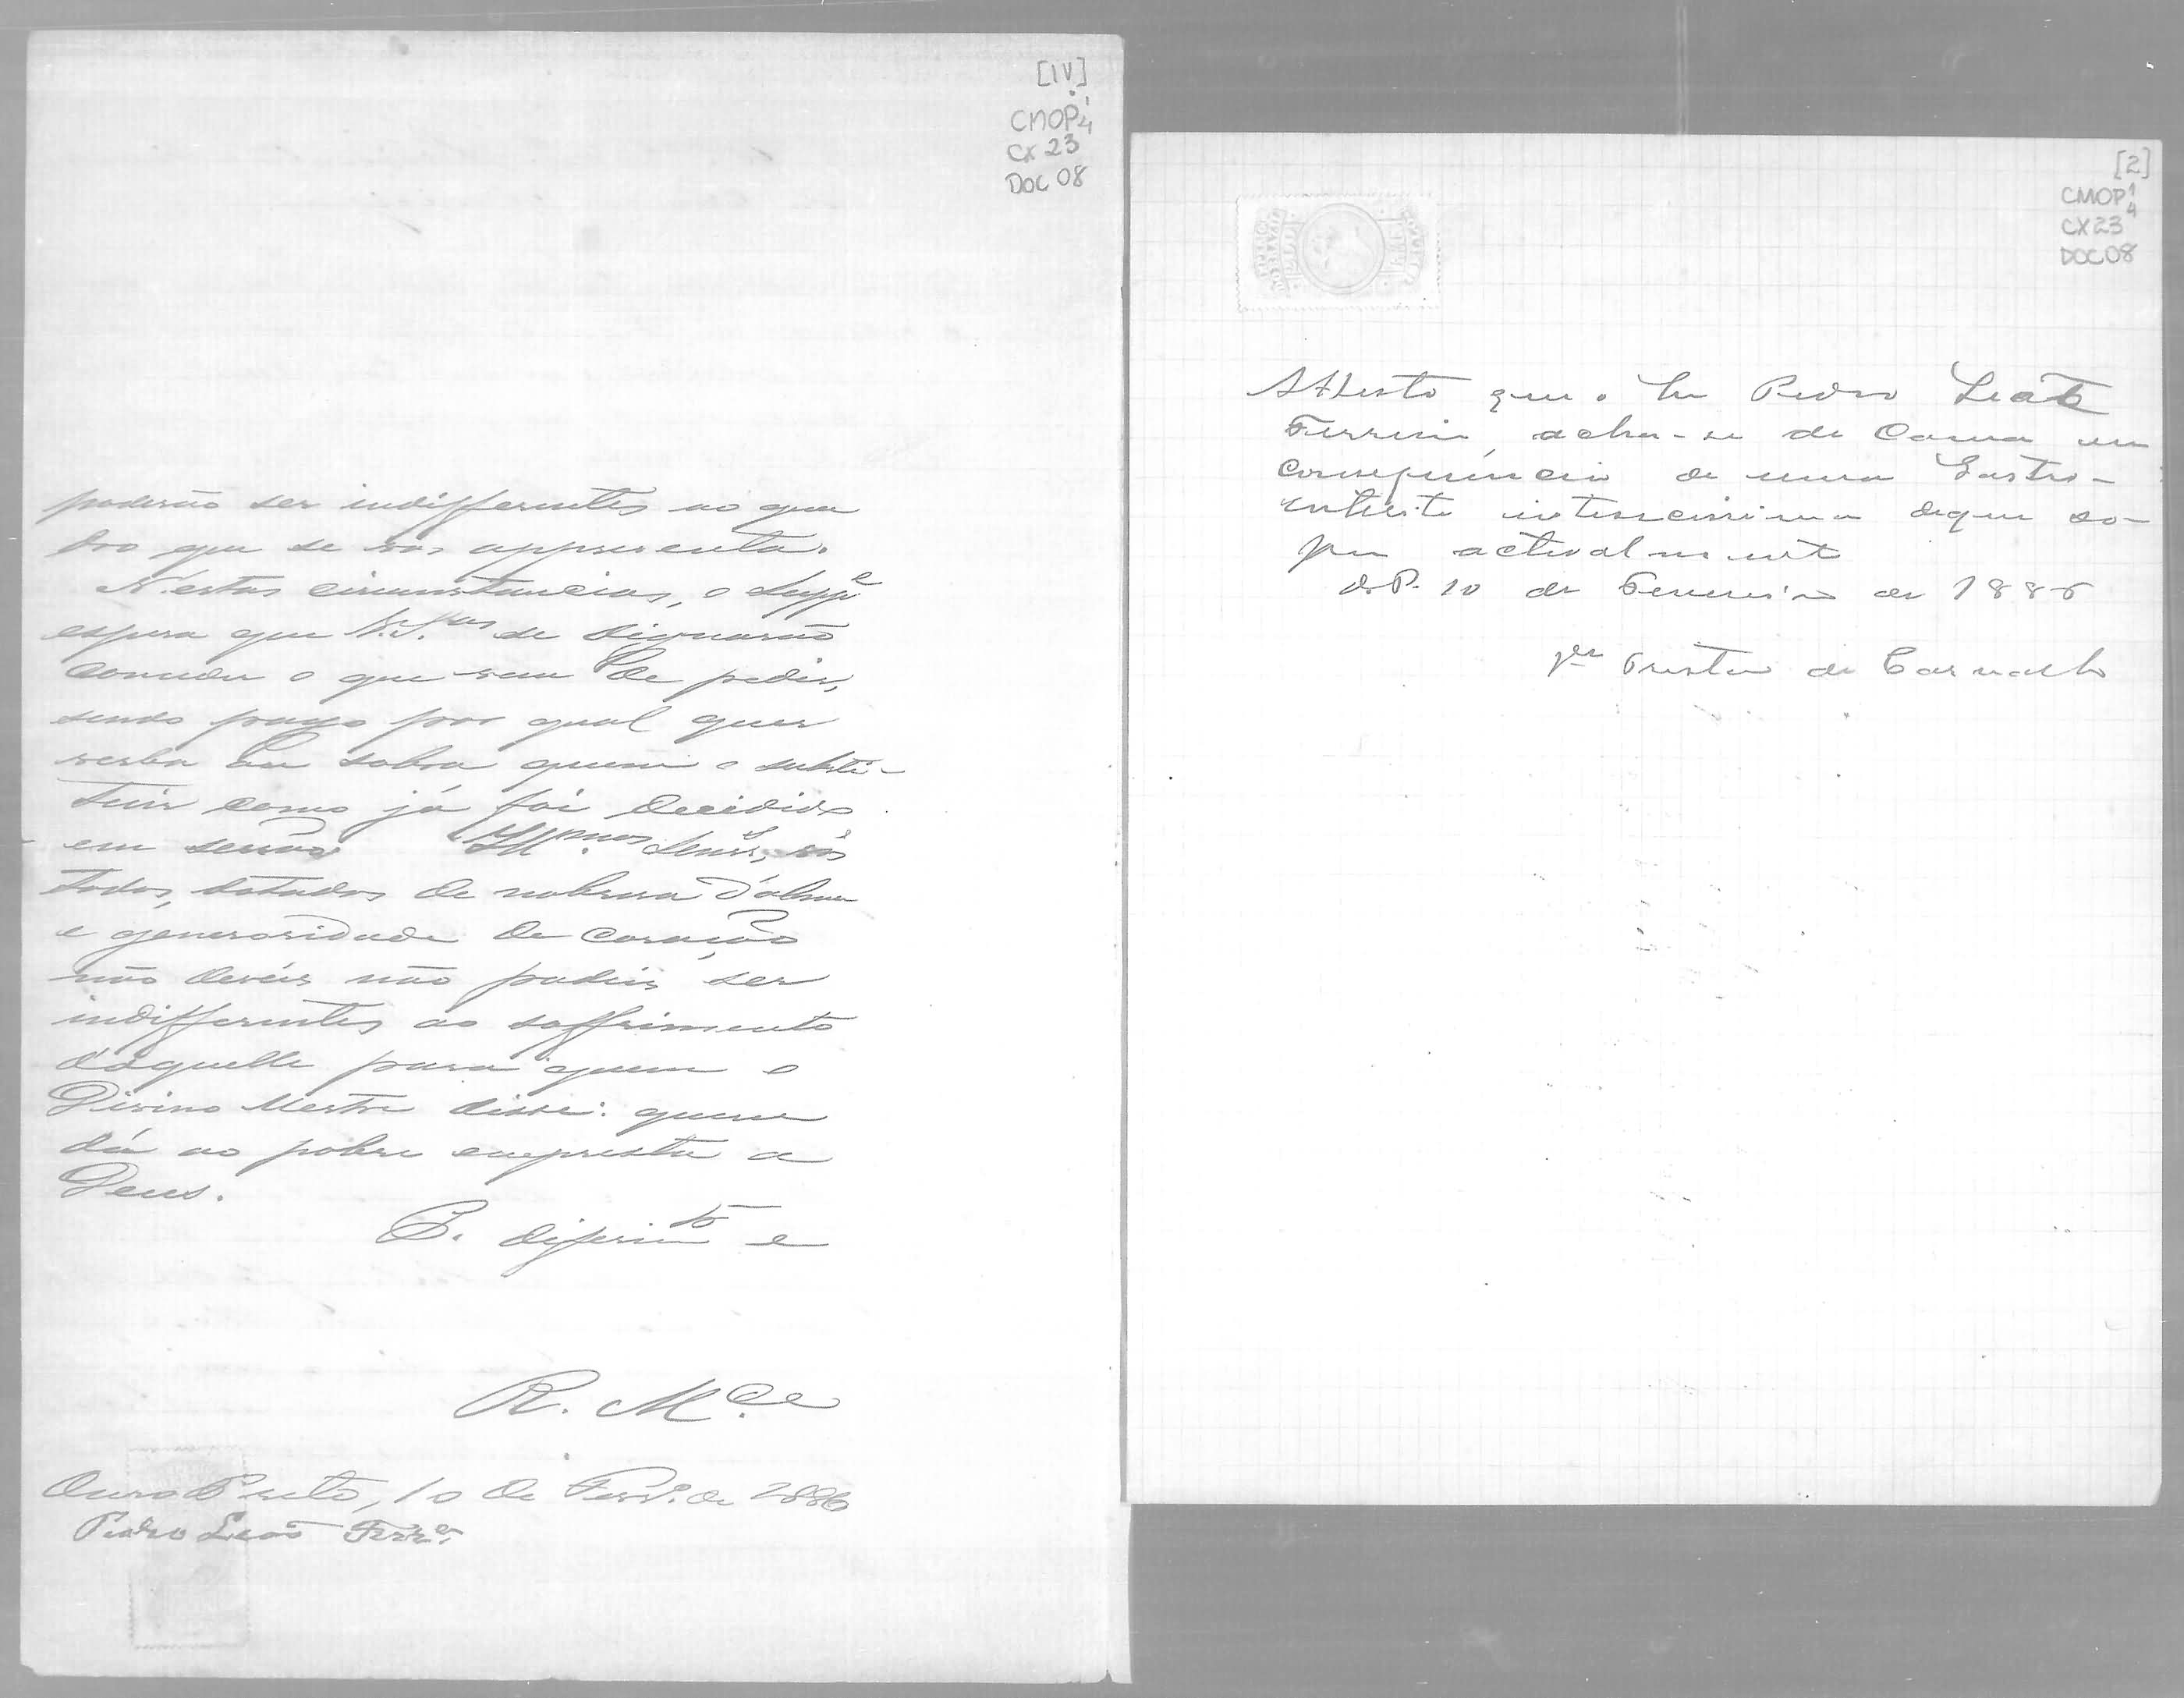 [1V]
CMOP 1/4
CX 23
DOC 08
poderão ser indifferentes ao qua
dro que se vos appresenta.
N'estas circunstancias, o Suppe
espera que V.S.as se dignarão
conceder o que vem de pedir,
sendo pago por qual quer
verba ou sobra quem o substi-
tuir como já foi decidido
em sessão Illmos Senrs, vós
todos, dotados de nobresa d'alma
e generosidade de coração
não deveis não podeis ser
indifferentes ao soffrimento
d'aquelle para quem o
Divino Mestre disse: quem
dá ao pobre empresta a
Deus.
E. diferimto e
R. Mce
Ouro Preto, 10 de Fevr.o de 1886
Pedro Leão Ferra.
[2]
CMOP 1/4
CX 23
DOC 08
Attesto que o Snr Pedro Leão
Ferreira, acha-se de Cama em
consequencia de uma Gastro-
enterite intensissima de que so-
fre actualmente
O.P. 10 de Fevereiro de 1886
de Carvalho